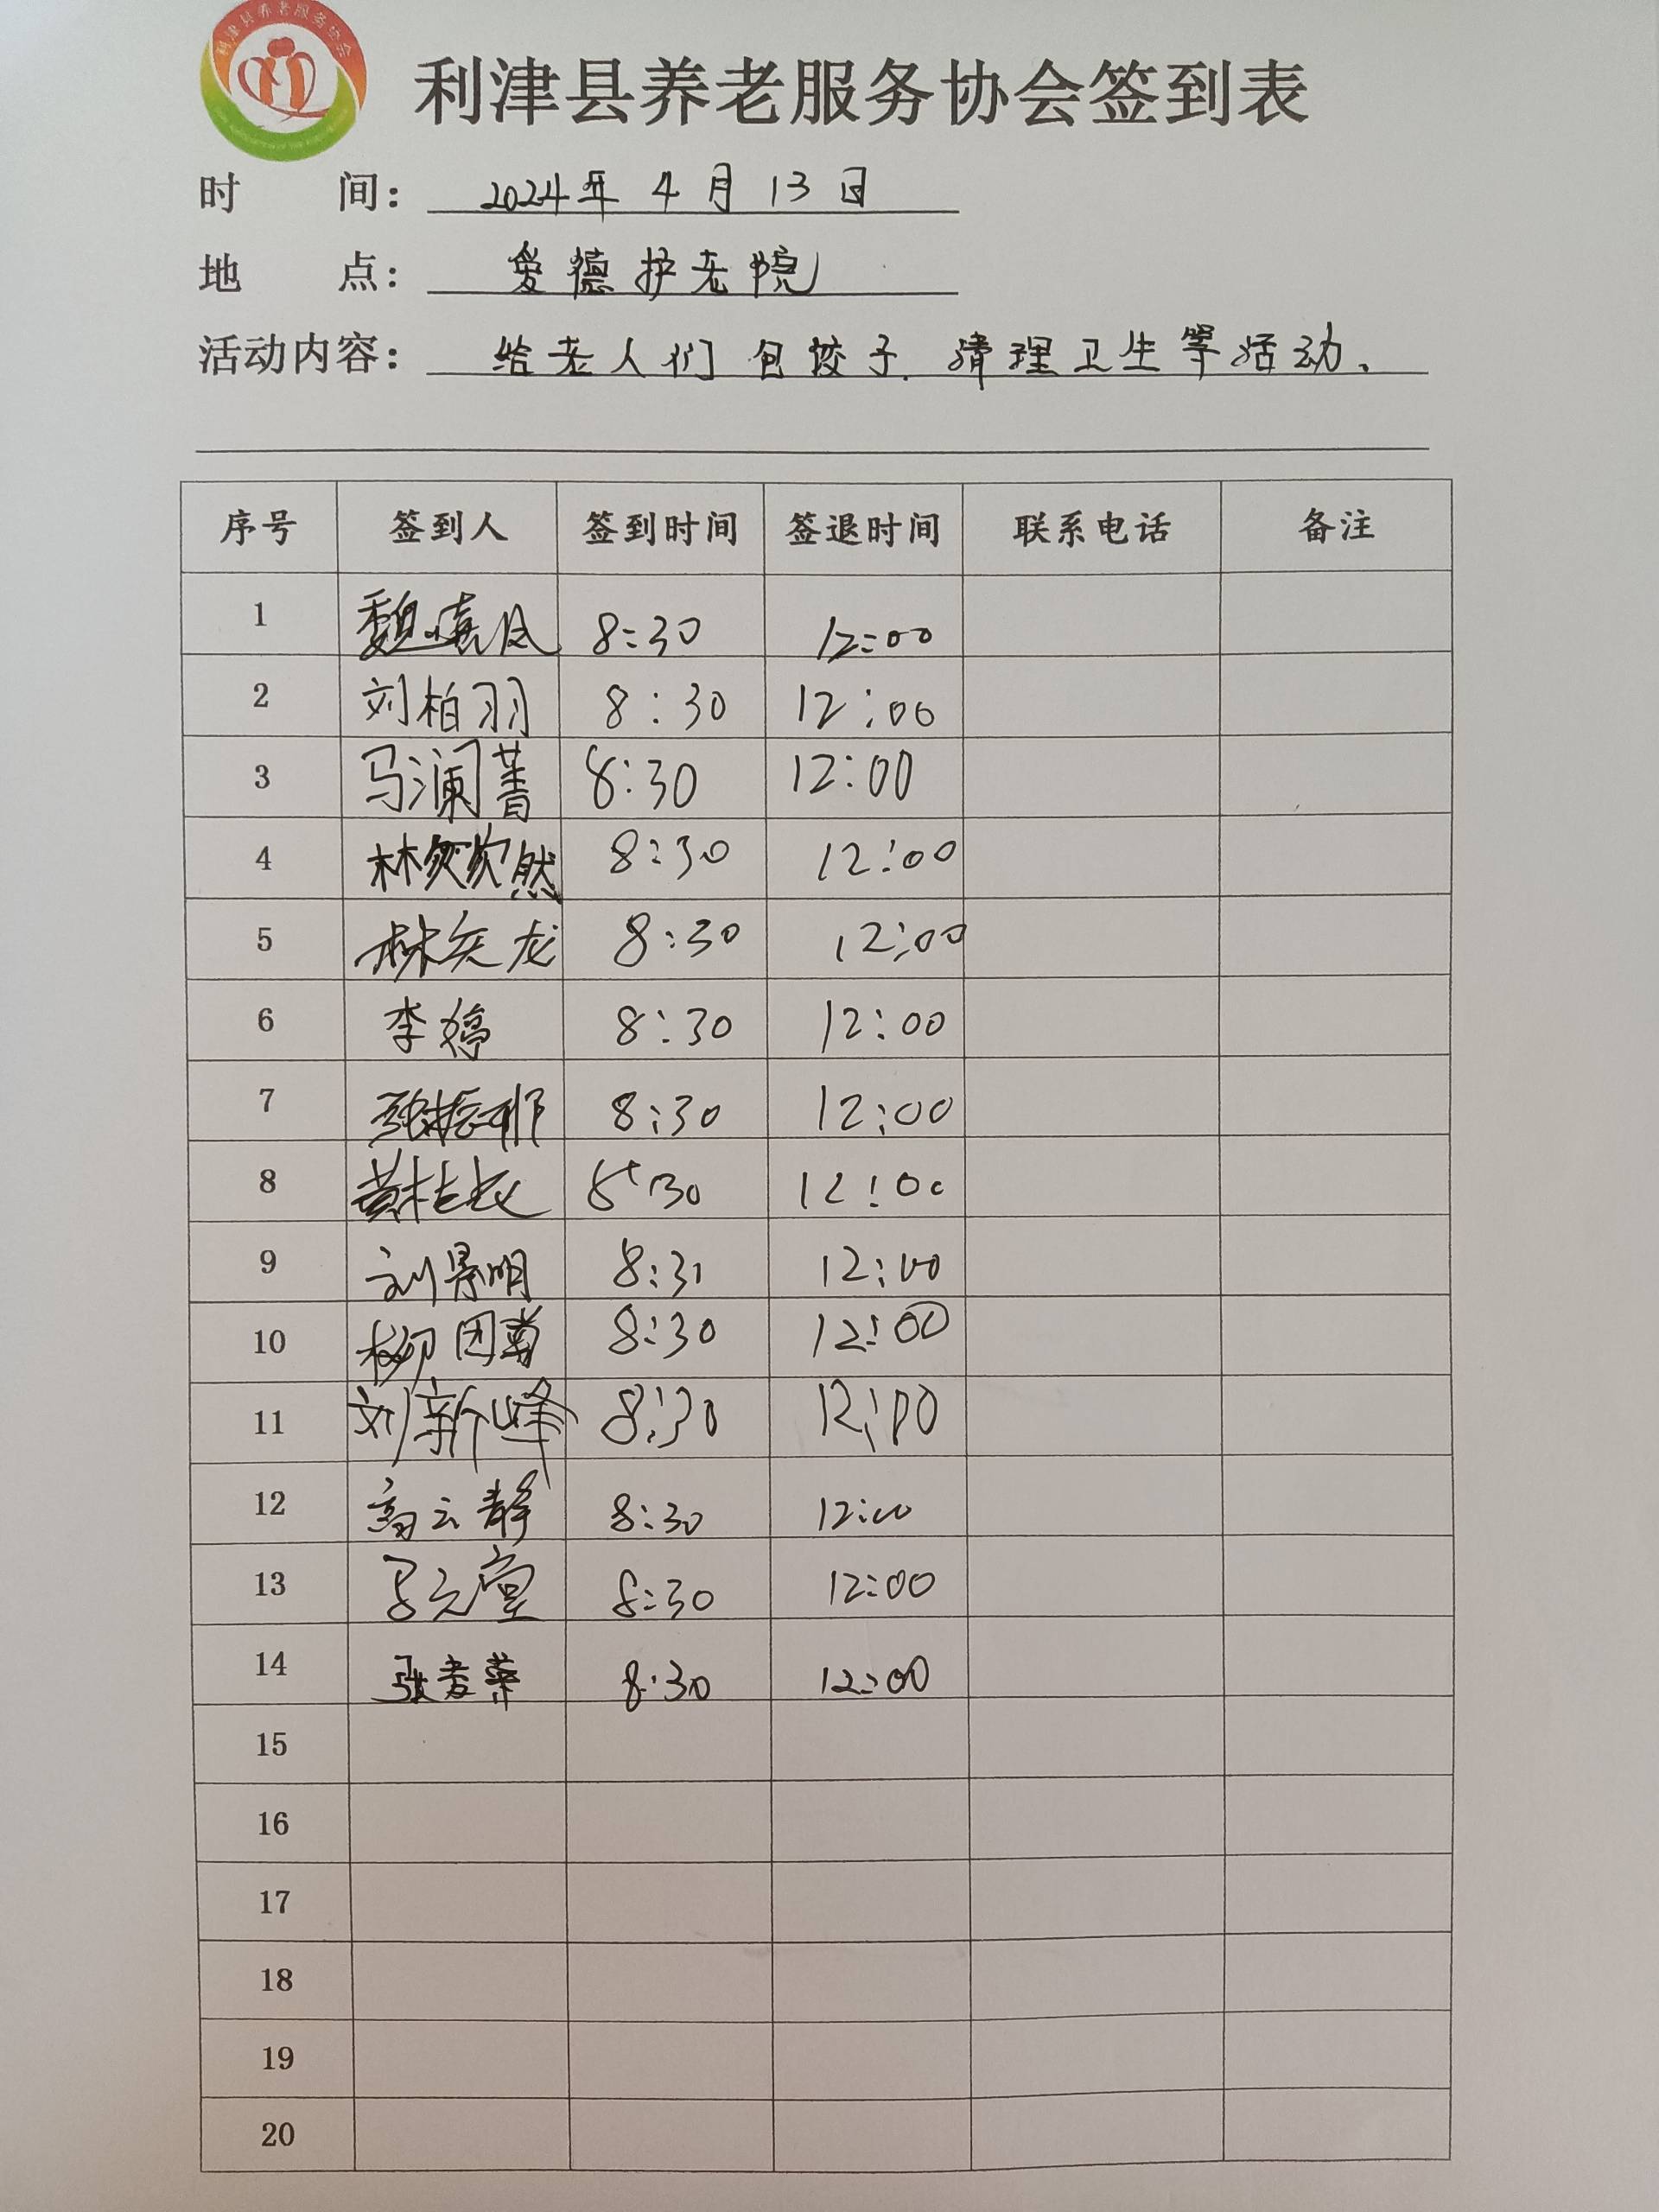 利津县养老服务协会
利津县养老服务协会签到表
时 间: 2024年 4月 13日
地 点: 爱德护老院
活动内容: 给老人们包饺子.清理卫生等活动、
序号 签到人 签到时间 签退时间 联系电话 备注
1 8:30 12:00
2 刘柏羽 8:30 12:00
3 马澜菁 8:30 12:00
4 8:30 12:00
5 8:30 12:00
6 李婷 8:30 12:00
7 8:30 12:00
8 12:00
9 刘景明 8:31 12:00
10 柳团菊 8:30 12:00
11 刘新峰 8:30 12:00
12 高云静 8:30 12:00
13 8:30 12:00
14 8:30 12:00
15
16
17
18
19
20